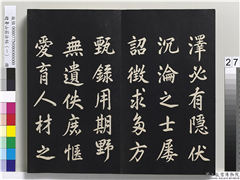 澤必有隱伏
沉淪之士屢
詔徵求多方
甄錄用期野
無遺佚庶愜
愛育人材之
27